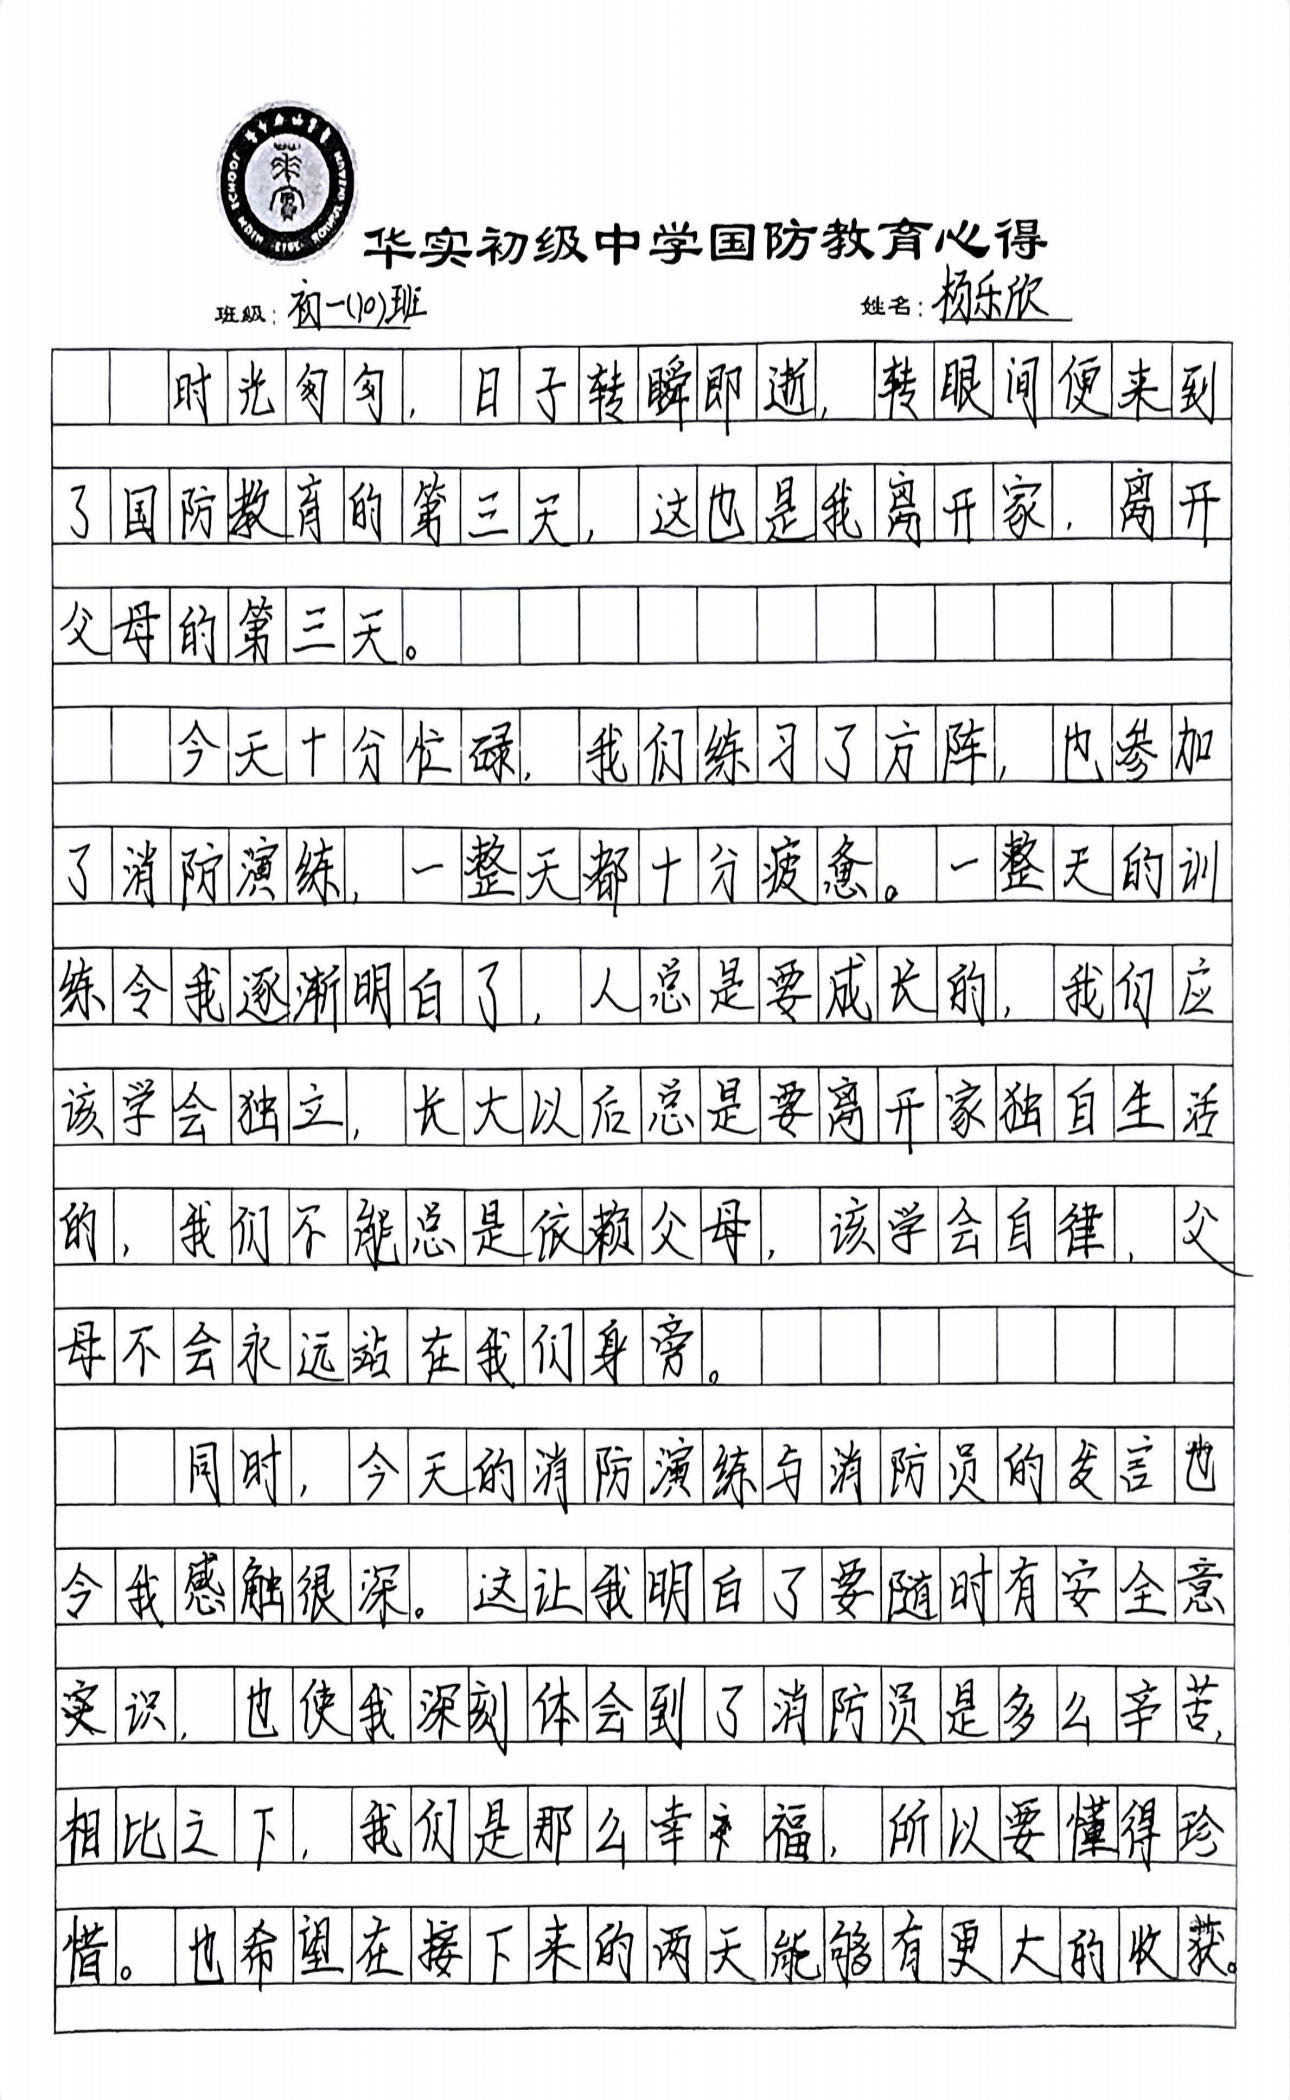 华实初级中学国防教育心得
班级：初一(10)班 姓名：杨乐欣
时光匆匆，日子转瞬即逝，转眼间便来到
了国防教育的第三天，这也是我离开家，离开
父母的第三天。
今天十分忙碌，我们练习了方阵，也参加
了消防演练，一整天都十分疲惫。一整天的训
练令我逐渐明白了，人总是要成长的，我们应
该学会独立，长大以后总是要离开家独自生活
的，我们不能总是依赖父母，该学会自律，父
母不会永远站在我们身旁。
同时，今天的消防演练与消防员的发言也
令我感触很深。这让我明白了要随时有安全意
识，也使我深刻体会到了消防员是多么辛苦，
相比之下，我们是那么幸福，所以要懂得珍
惜。也希望在接下来的两天能够有更大的收获。